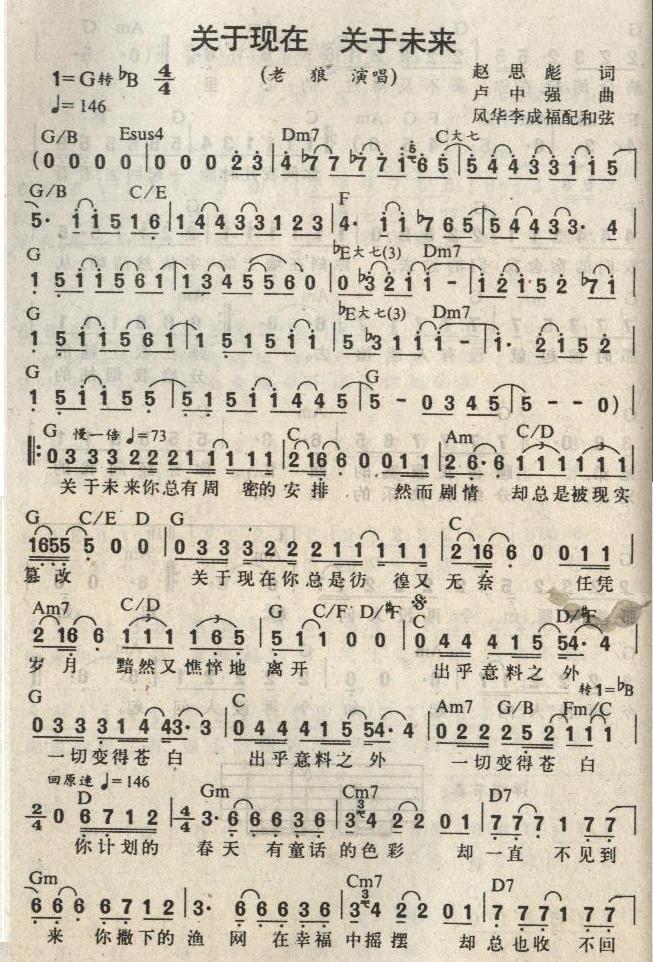 关于现在 关于未来
1=G转♭B 4/4
(老 狼 演唱)
赵 思 彪 词
♩=146
卢 中 强 曲
风华李成福配和弦
G/B Esus4 Dm7 C大七
(0 0 0 0 | 0 0 0 2 3 | 4 ♭7 7 ♭7 7 1 6 5 | 5 4 4 3 3 1 1 5
G/B C/E F
5· 1 1 5 1 6 | 1 4 4 3 3 1 2 3 | 4· 1 1 ♭7 6 5 | 5 4 4 3 3· 4
G ♭E大七(3) Dm7
1 5 1 1 5 6 1 | 1 3 4 5 5 6 0 | 0 ♭3 2 1 1 - | 1 2 1 5 2 ♭7 1
G ♭E大七(3) Dm7
1 5 1 1 5 6 1 | 1 1 5 1 5 1 1 | 5 ♭3 1 1 1 - | 1· 2 1 5 2
G G
1 5 1 1 5 5 | 5 1 5 1 1 4 4 5 | 5 - 0 3 4 5 | 5 - - 0)
G 慢一倍 ♩=73 C Am C/D
0 3 3 3 2 2 2 1 1 1 1 1 | 2 16 6 0 0 1 1 | 2 6·6 1 1 1 1 1 1
关于未来你总有周 密的安排 然而剧情 却总是被现实
G C/E D G C
1655 5 0 0 | 0 3 3 3 2 2 2 1 1 1 1 1 | 2 16 6 0 0 1 1
篡改 关于现在你总是彷 徨又无奈 任凭
Am7 C/D G C/F D/♯F C D/♯F
2 16 6 1 1 1 1 6 5 | 5 1 1 0 0 | 0 4 4 4 1 5 54· 4
岁月 黯然又憔悴地 离开 出乎意料之 外
转1=♭B
G C Am7 G/B Fm/C
0 3 3 3 1 4 43· 3 | 0 4 4 4 1 5 54· 4 | 0 2 2 2 5 2 1 1 1
一切变得苍 白 出乎意料之 外 一切变得苍 白
回原速 ♩=146
D Gm Cm7 D7
2/4 0 6 7 1 2 | 4/4 3· 6 6 6 3 6 | 3 4 2 2 0 1 | 7 7 7 1 7 7
你计划的 春天 有童话 的色彩 却 一直 不见到
Gm Cm7 D7
6 6 6 6 7 1 2 | 3· 6 6 6 3 6 | 3 4 2 2 0 1 | 7 7 7 1 7 7
来 你撒下的 渔 网 在幸福 中摇摆 却 总也收 不回